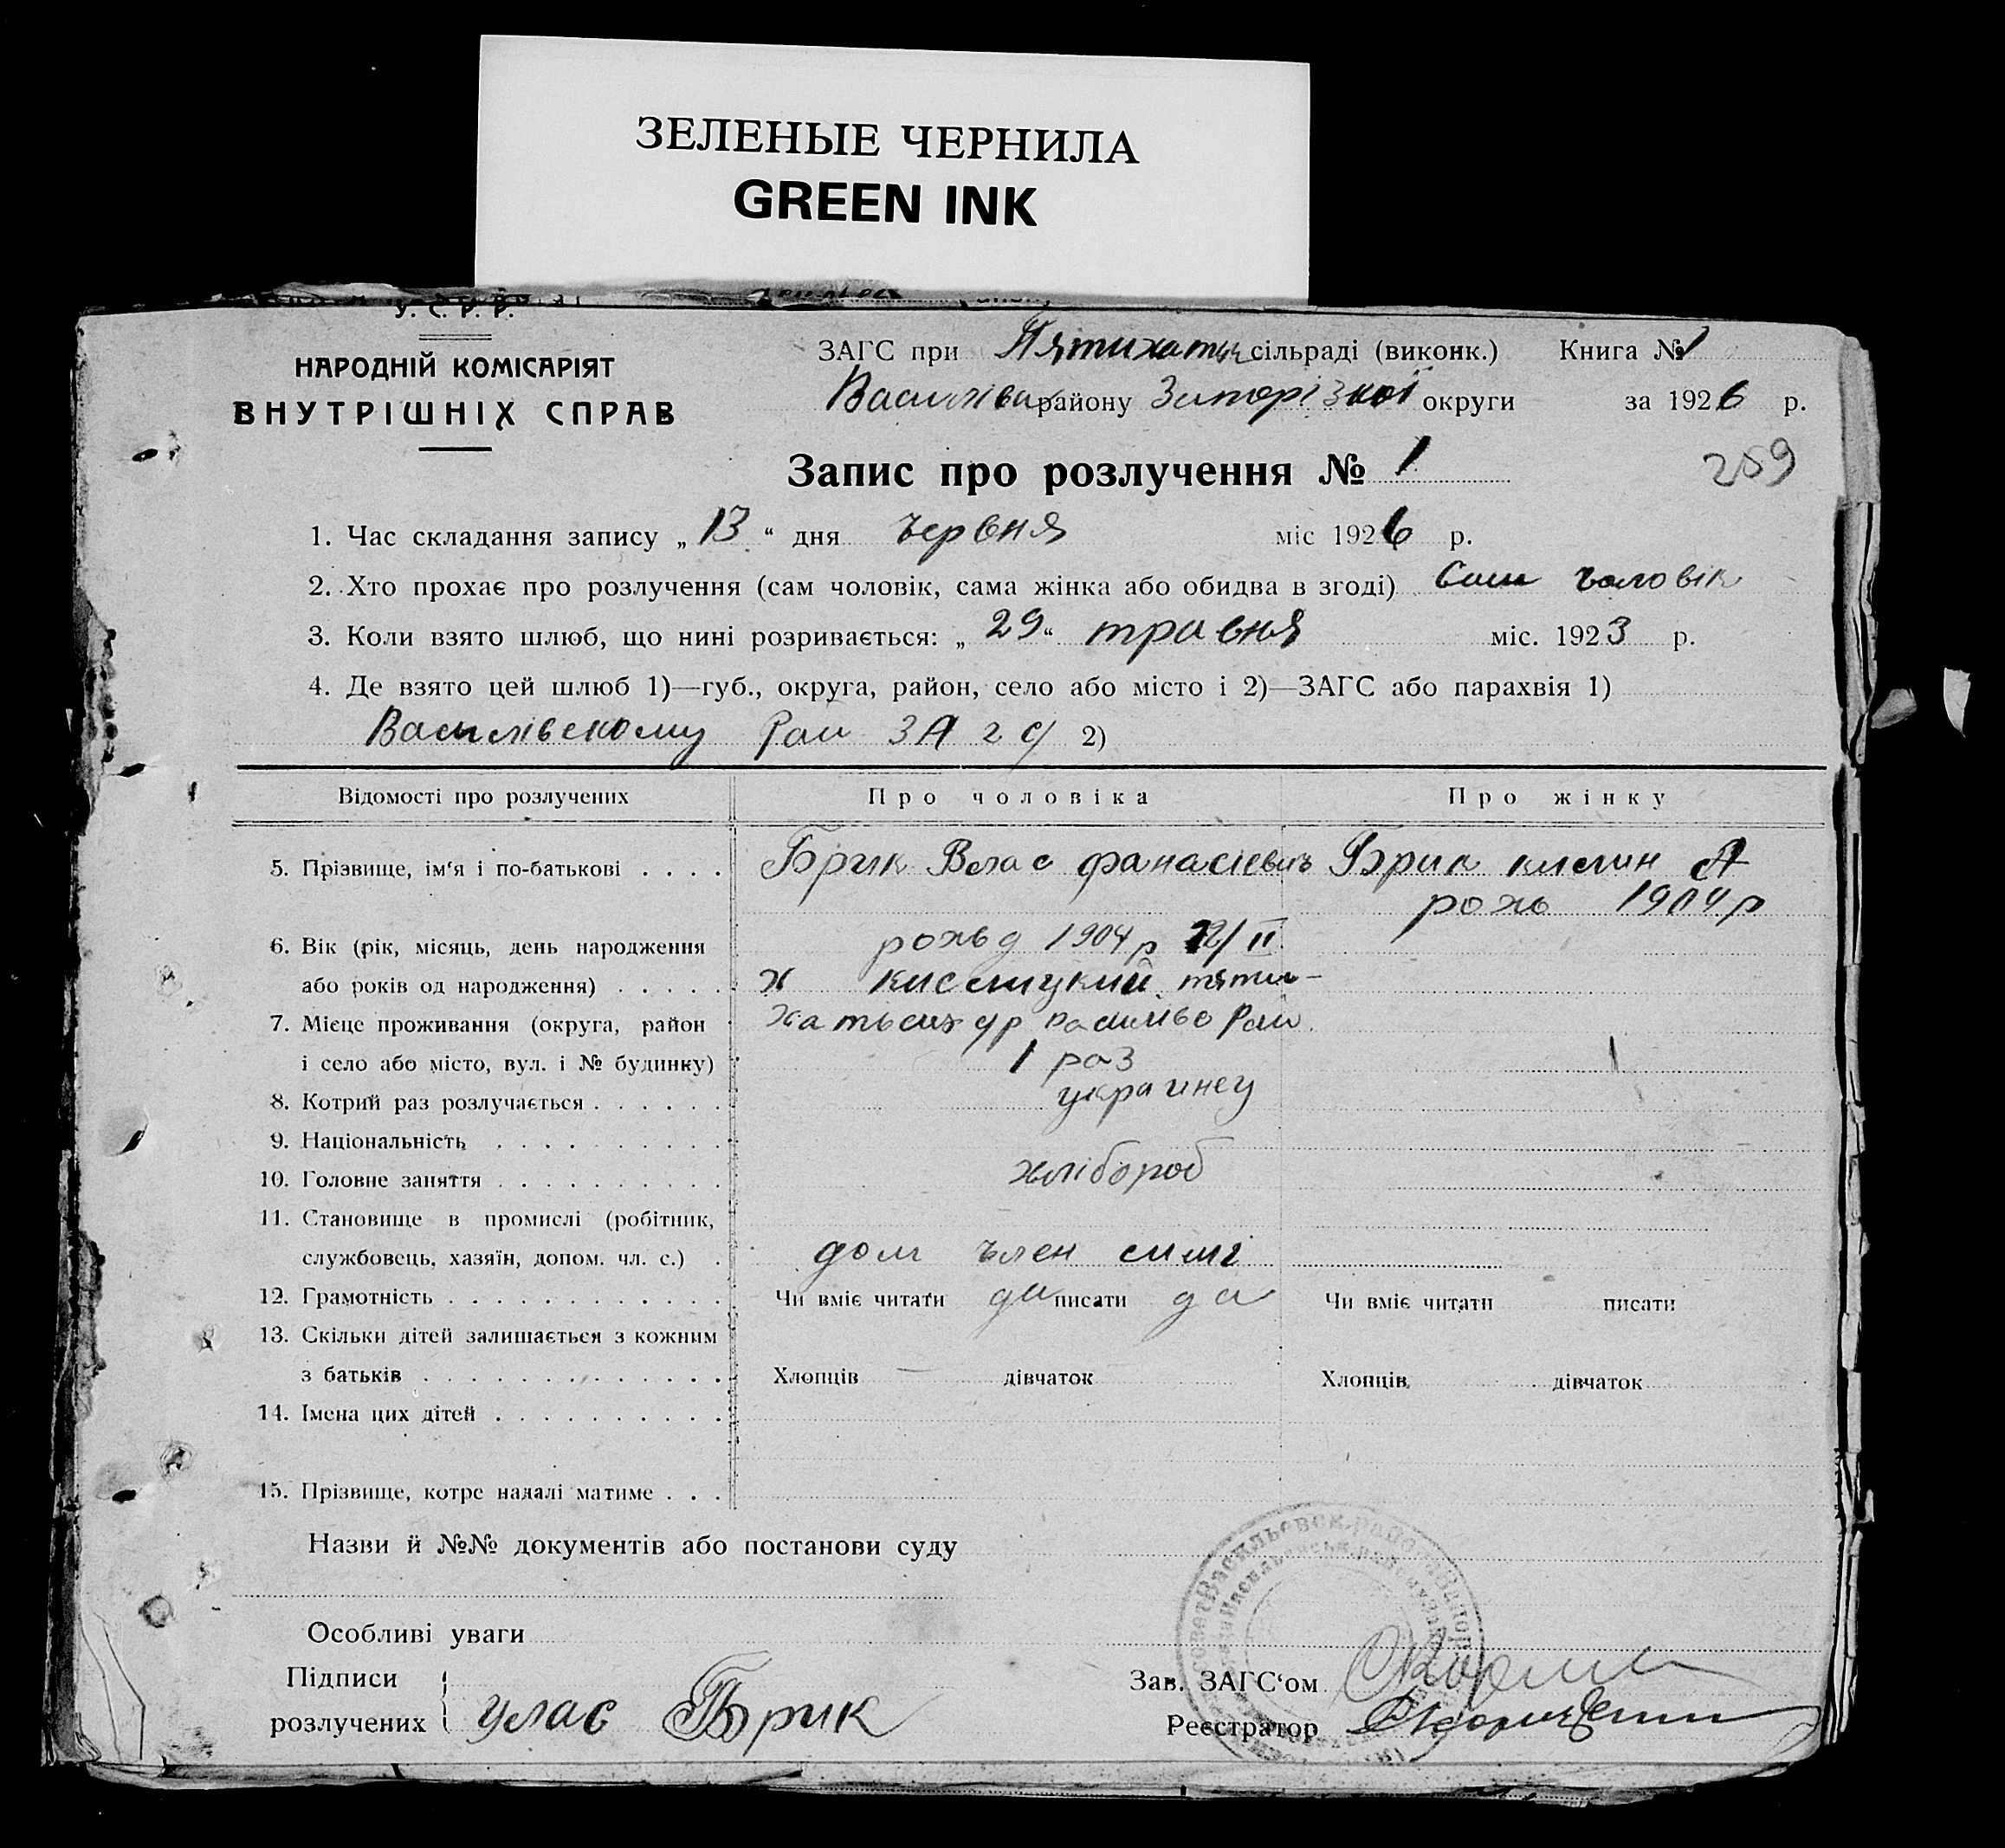 ЗЕЛЕНЫЕ ЧЕРНИЛА
GREEN INK
У. С. Р. Р.
НАРОДНІЙ КОМІСАРІЯТ
ВНУТРІШНІХ СПРАВ
ЗАГС при Пятихатцк сільраді (виконк.) Книга № 1
Василівск району Запорізкої округи за 1926 р.
Запис про розлучення № 1
259
1. Час складання запису „ 13 “ дня червня міс 1926 р.
2. Хто прохає про розлучення (сам чоловік, сама жінка або обидва в згоді) Сам чоловік
3. Коли взято шлюб, що нині розривається: „ 29 “ травня міс. 1923 р.
4. Де взято цей шлюб 1)—губ., округа, район, село або місто і 2)—ЗАГС або парахвія 1)
Василівскому Рай ЗАгс 2)
Відомості про розлучених Про чоловіка Про жінку
5. Прізвище, ім‘я і по-батькові . . . . Брик Влас фанасієвич Брик А
рожо 1904 р
6. Вік (рік, місяць, день народження рожд 1904 р 12/II
або років од народження) . . . . . х пяти-
7. Місце проживання (округа, район Рай.
і село або місто, вул. і № будинку) 1 раз 1
8. Котрий раз розлучається . . . . . . украинец
9. Національність . . . . . . . . . .
10. Головне заняття . . . . . . . . . . хлібороб
11. Становище в промислі (робітник,
службовець, хазяїн, допом. чл. с.) . дом член симі
12. Грамотність . . . . . . . . . . . . Чи вміє читати да писати да Чи вміє читати писати
13. Скільки дітей залишається з кожним
з батьків . . . . . . . . . . . . . Хлопців — дівчаток Хлопців дівчаток
14. Імена цих дітей . . . . . . . . . .
15. Прізвище, котре надалі матиме . . .
Назви й №№ документів або постанови суду
Особливі уваги
Підписи
розлучених улас Брик
Зав. ЗАГС‘ом
Реєстратор